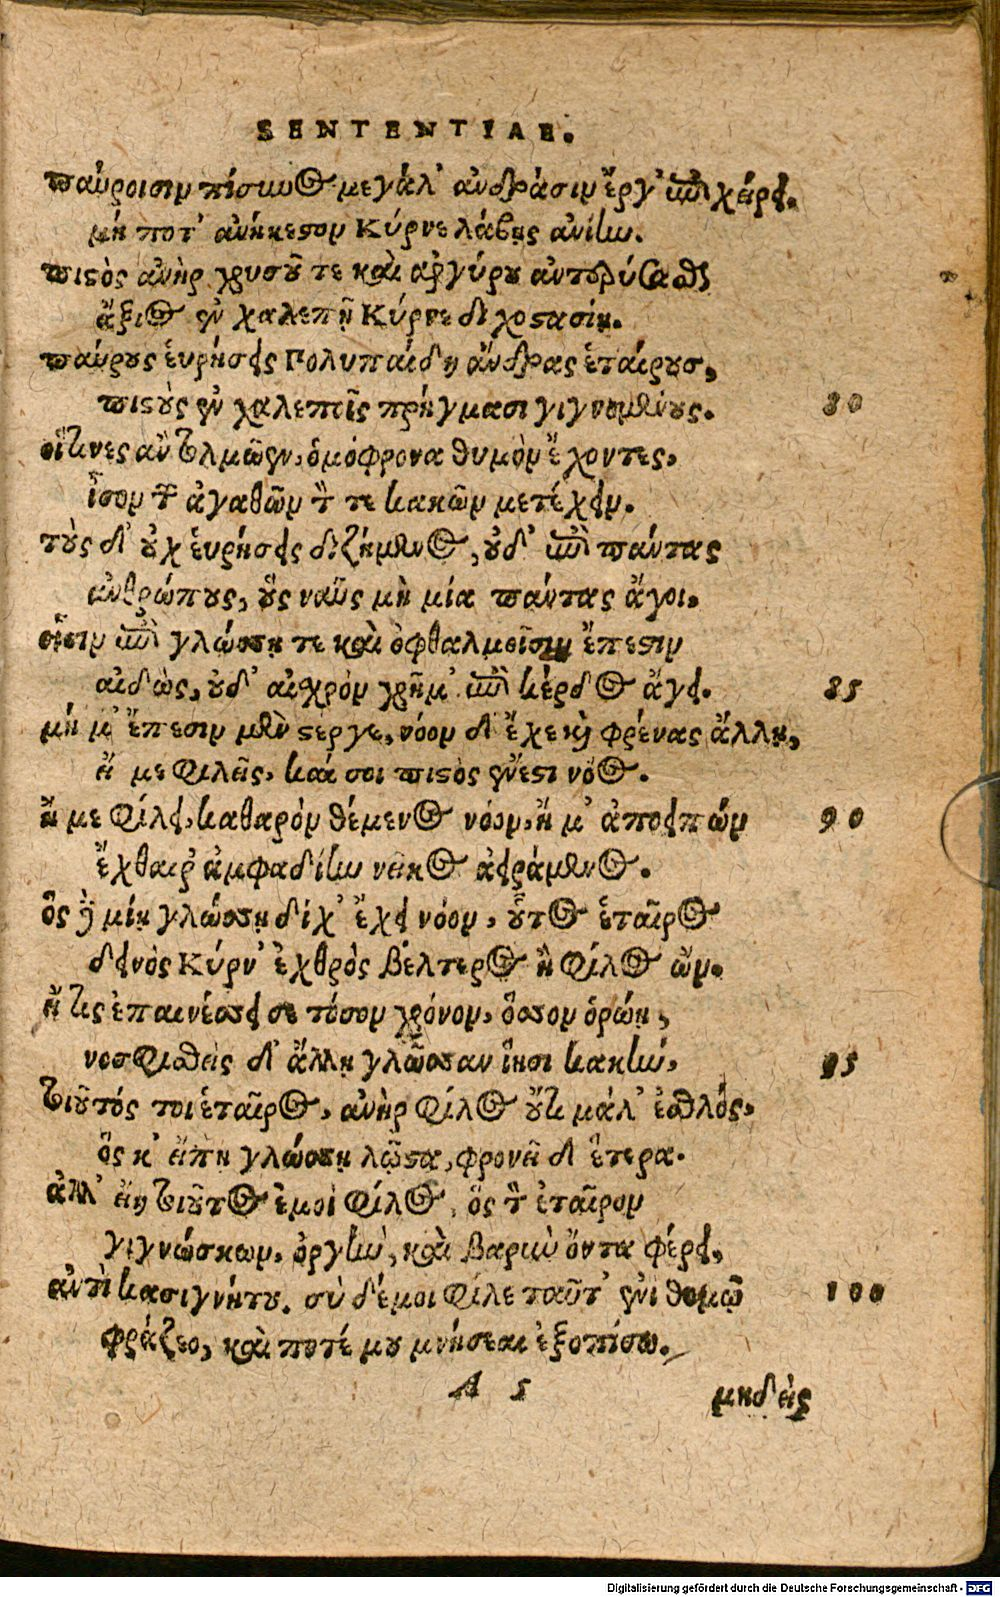 SENTENTIAE.
παύροισιν πίσυνος μεγάλ' ἀνδράσιν ἔργ' ἐπιχείρει.
μή ποτ' ἀνήκεστον Κύρνε λάβῃς ἀνίην.
πιστὸς ἀνὴρ χρυσοῦ τε καὶ ἀργύρου ἀντερύσασθαι
ἄξιος ἐν χαλεπῇ Κύρνε διχοστασίῃ.
παύρους εὑρήσεις Πολυπαίδη ἄνδρας ἑταίρους,
πιστοὺς ἐν χαλεποῖς πρήγμασι γιγνομένους. 80
οἵτινες ἂν τολμῷεν, ὁμόφρονα θυμὸν ἔχοντες,
ἶσον τῶν ἀγαθῶν τῶν τε κακῶν μετέχειν.
τοὺς δ' οὐχ εὑρήσεις διζήμενος, οὐδ' ἐπὶ πάντας
ἀνθρώπους, οὓς ναῦς μὴ μία πάντας ἄγοι.
οἷσιν ἐπὶ γλώσσῃ τε καὶ ὀφθαλμοῖσιν ἔπεστιν
αἰδὼς, οὐδ' αἰσχρὸν χρῆμ' ἐπὶ κέρδος ἄγει. 85
μή μ' ἔπεσιν μὲν στέργε, νόον δ' ἔχε καὶ φρένας ἄλλῃ,
εἴ με φιλεῖς, καί σοι πιστὸς ἔνεστι νόος.
ἤ με φίλει, καθαρὸν θέμενος νόον, ἤ μ' ἀποειπὼν 90
ἔχθαιρ' ἀμφαδίην νεῖκος ἀειράμενος.
ὃς δὲ μίῃ γλώσσῃ δίχ' ἔχει νόον, οὗτος ἑταῖρος
δεινὸς Κύρν' ἐχθρὸς βέλτερος ἢ φίλος ὤν.
ἤ τις ἐπαινέσσει σε τόσον χρόνον, ὅσσον ὁρώῃ,
νοσφισθεὶς δ' ἄλλῃ γλῶσσαν ἵησι κακήν, 95
τοιοῦτός τοι ἑταῖρος, ἀνὴρ φίλος οὔτι μάλ' ἐσθλός,
ὅς κ' εἴπῃ γλώσσῃ λῷστα, φρονεῖ δ' ἕτερα.
ἀλλ' εἴη τοιοῦτος ἐμοὶ φίλος, ὃς τὸν ἑταῖρον
γιγνώσκων, ὀργὴν, καὶ βαρὺν ὄντα φέρει,
ἀντὶ κασιγνήτου. σὺ δ' ἐμοι φίλε ταῦτ' ἐνὶ θυμῷ 100
φράζεο, καὶ ποτέ μου μνήσεαι ἐξοπίσω.
A 5 μηδεὶς
Digitalisierung gefördert durch die Deutsche Forschungsgemeinschaft - DFG